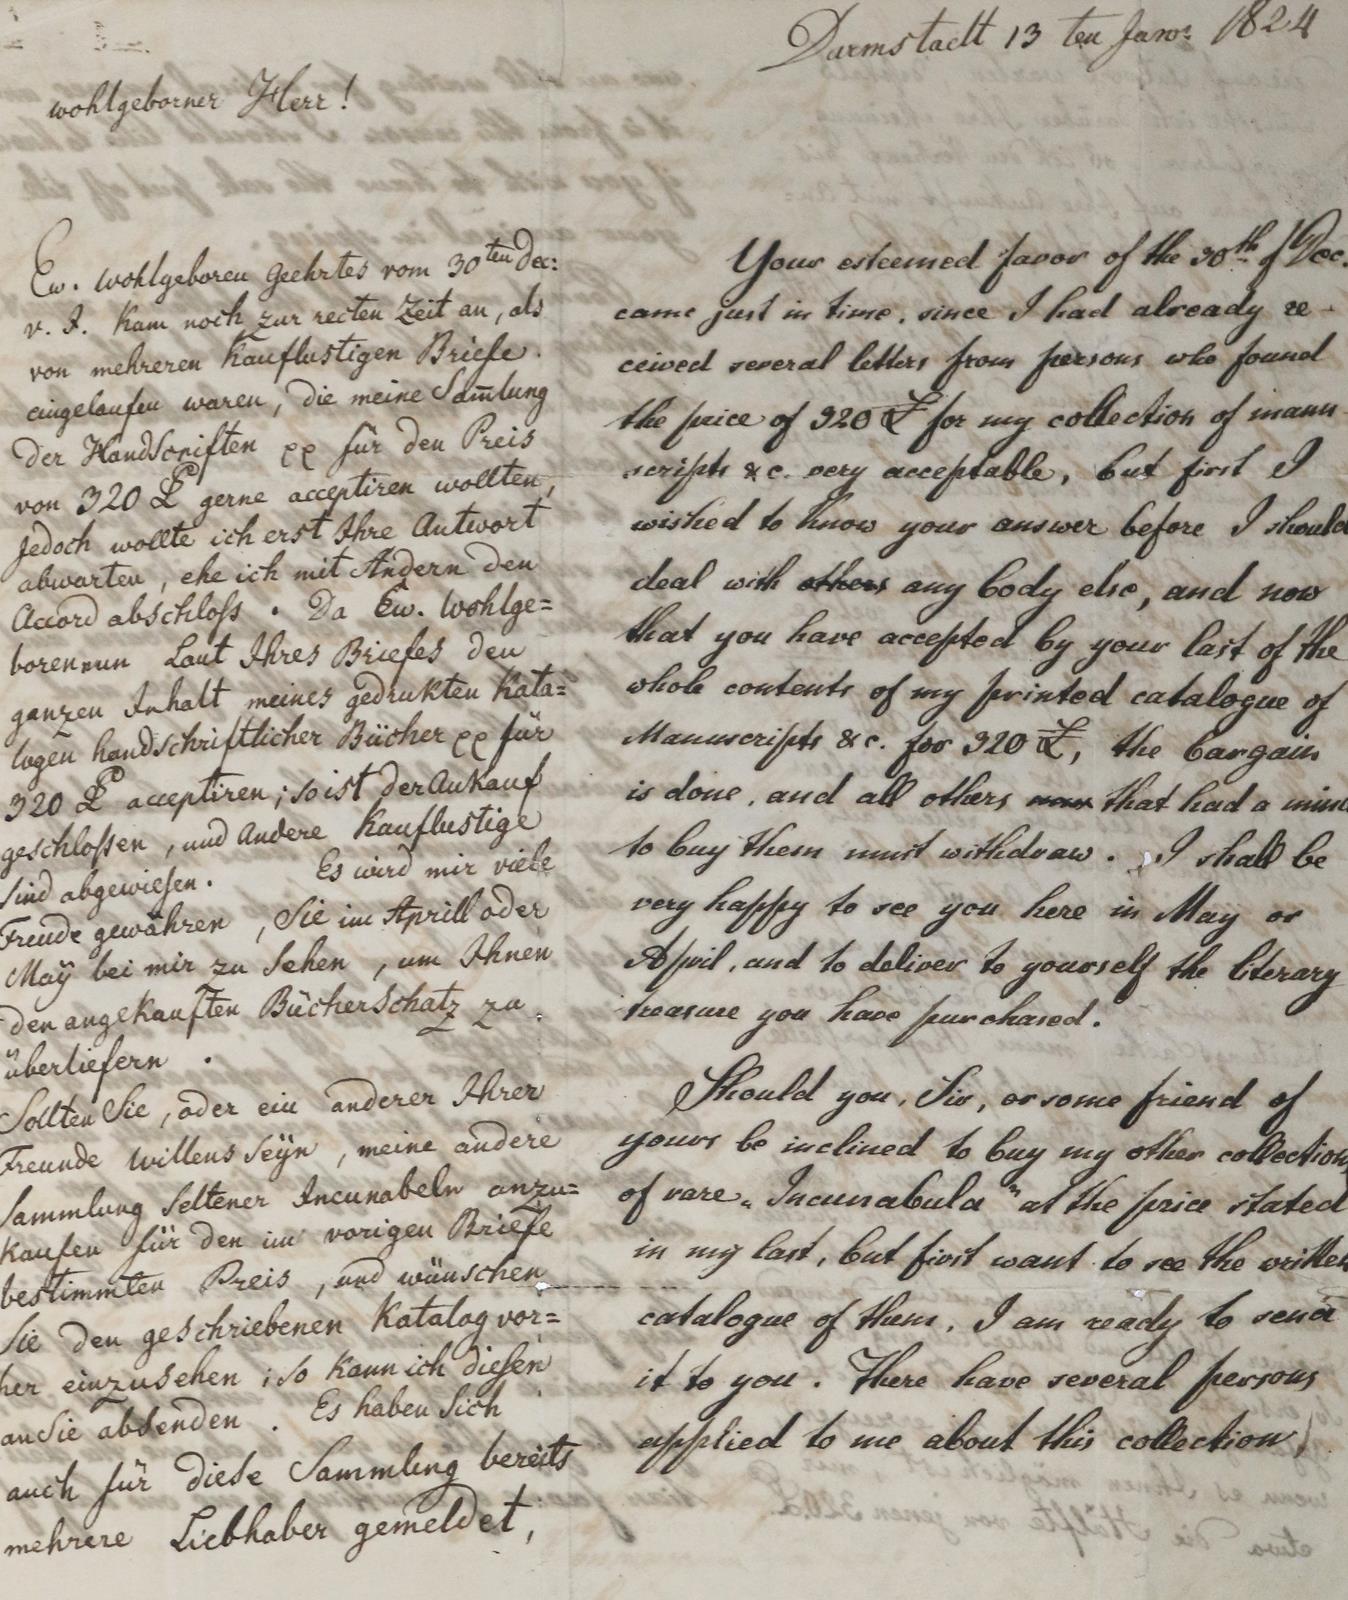 Darmstadt 13 ten Janr. 1824
wohlgeborner Herr!
Ew. Wohlgeboren Geehrtes vom 30ten Dec:
v. J. kam noch zur recten Zeit an, als
von mehreren Kauflustigen Briefe
eingelaufen waren, die meine Sam̄lung
der Handscriften pp für den Preis
von 320 £ gerne acceptiren wollten,
jedoch wollte ich erst Ihre Antwort
abwarten, ehe ich mit Andern den
Accord abschloß. Da Ew. Wohlge=
boren nun Laut Ihres Briefes den
ganzen Inhalt meines gedrukten Kata=
logen handschriftlicher Bücher pp für
320 £ acceptiren; so ist der Ankauf
geschloßen, und Andere Kauflustige
sind abgewiesen. Es wird mir viele
Freude gewähren, Sie im Aprill oder
Maÿ bei mir zu sehen, um Ihnen
den angekauften Bücherschatz zu
überliefern.
Sollten Sie, oder ein anderer Ihrer
Freunde willens seÿn, meine andere
Sammlung seltener Incunabeln anzu=
kaufen für den im vorigen Briefe
bestimmten Preis, und wünschen
Sie den geschriebenen Katalog vor=
her einzusehen; so kann ich diesen
an Sie absenden. Es haben sich
auch für diese Sammlung bereits
mehrere Liebhaber gemeldet,
Your esteemed favor of the 30th of Dec.
came just in time, since I had already re-
ceived several letters from persons who found
the price of 320 £ for my collection of manu-
scripts &c. very acceptable, but first I
wished to know your answer before I should
deal with others any body else, and now
that you have accepted by your last of the
whole contents of my printed catalogue of
Manuscripts &c. for 320 £, the bargain
is done, and all others that had a mind
to buy them must withdraw. I shall be
very happy to see you here in May or
April, and to deliver to yourself the literary
treasure you have purchased.
Should you, Sir, or some friend of
yours be inclined to buy my other collection
of rare „Incunabula" at the price stated
in my last, but first want to see the written
catalogue of them, I am ready to send
it to you. There have several persons
applied to me about this collection,